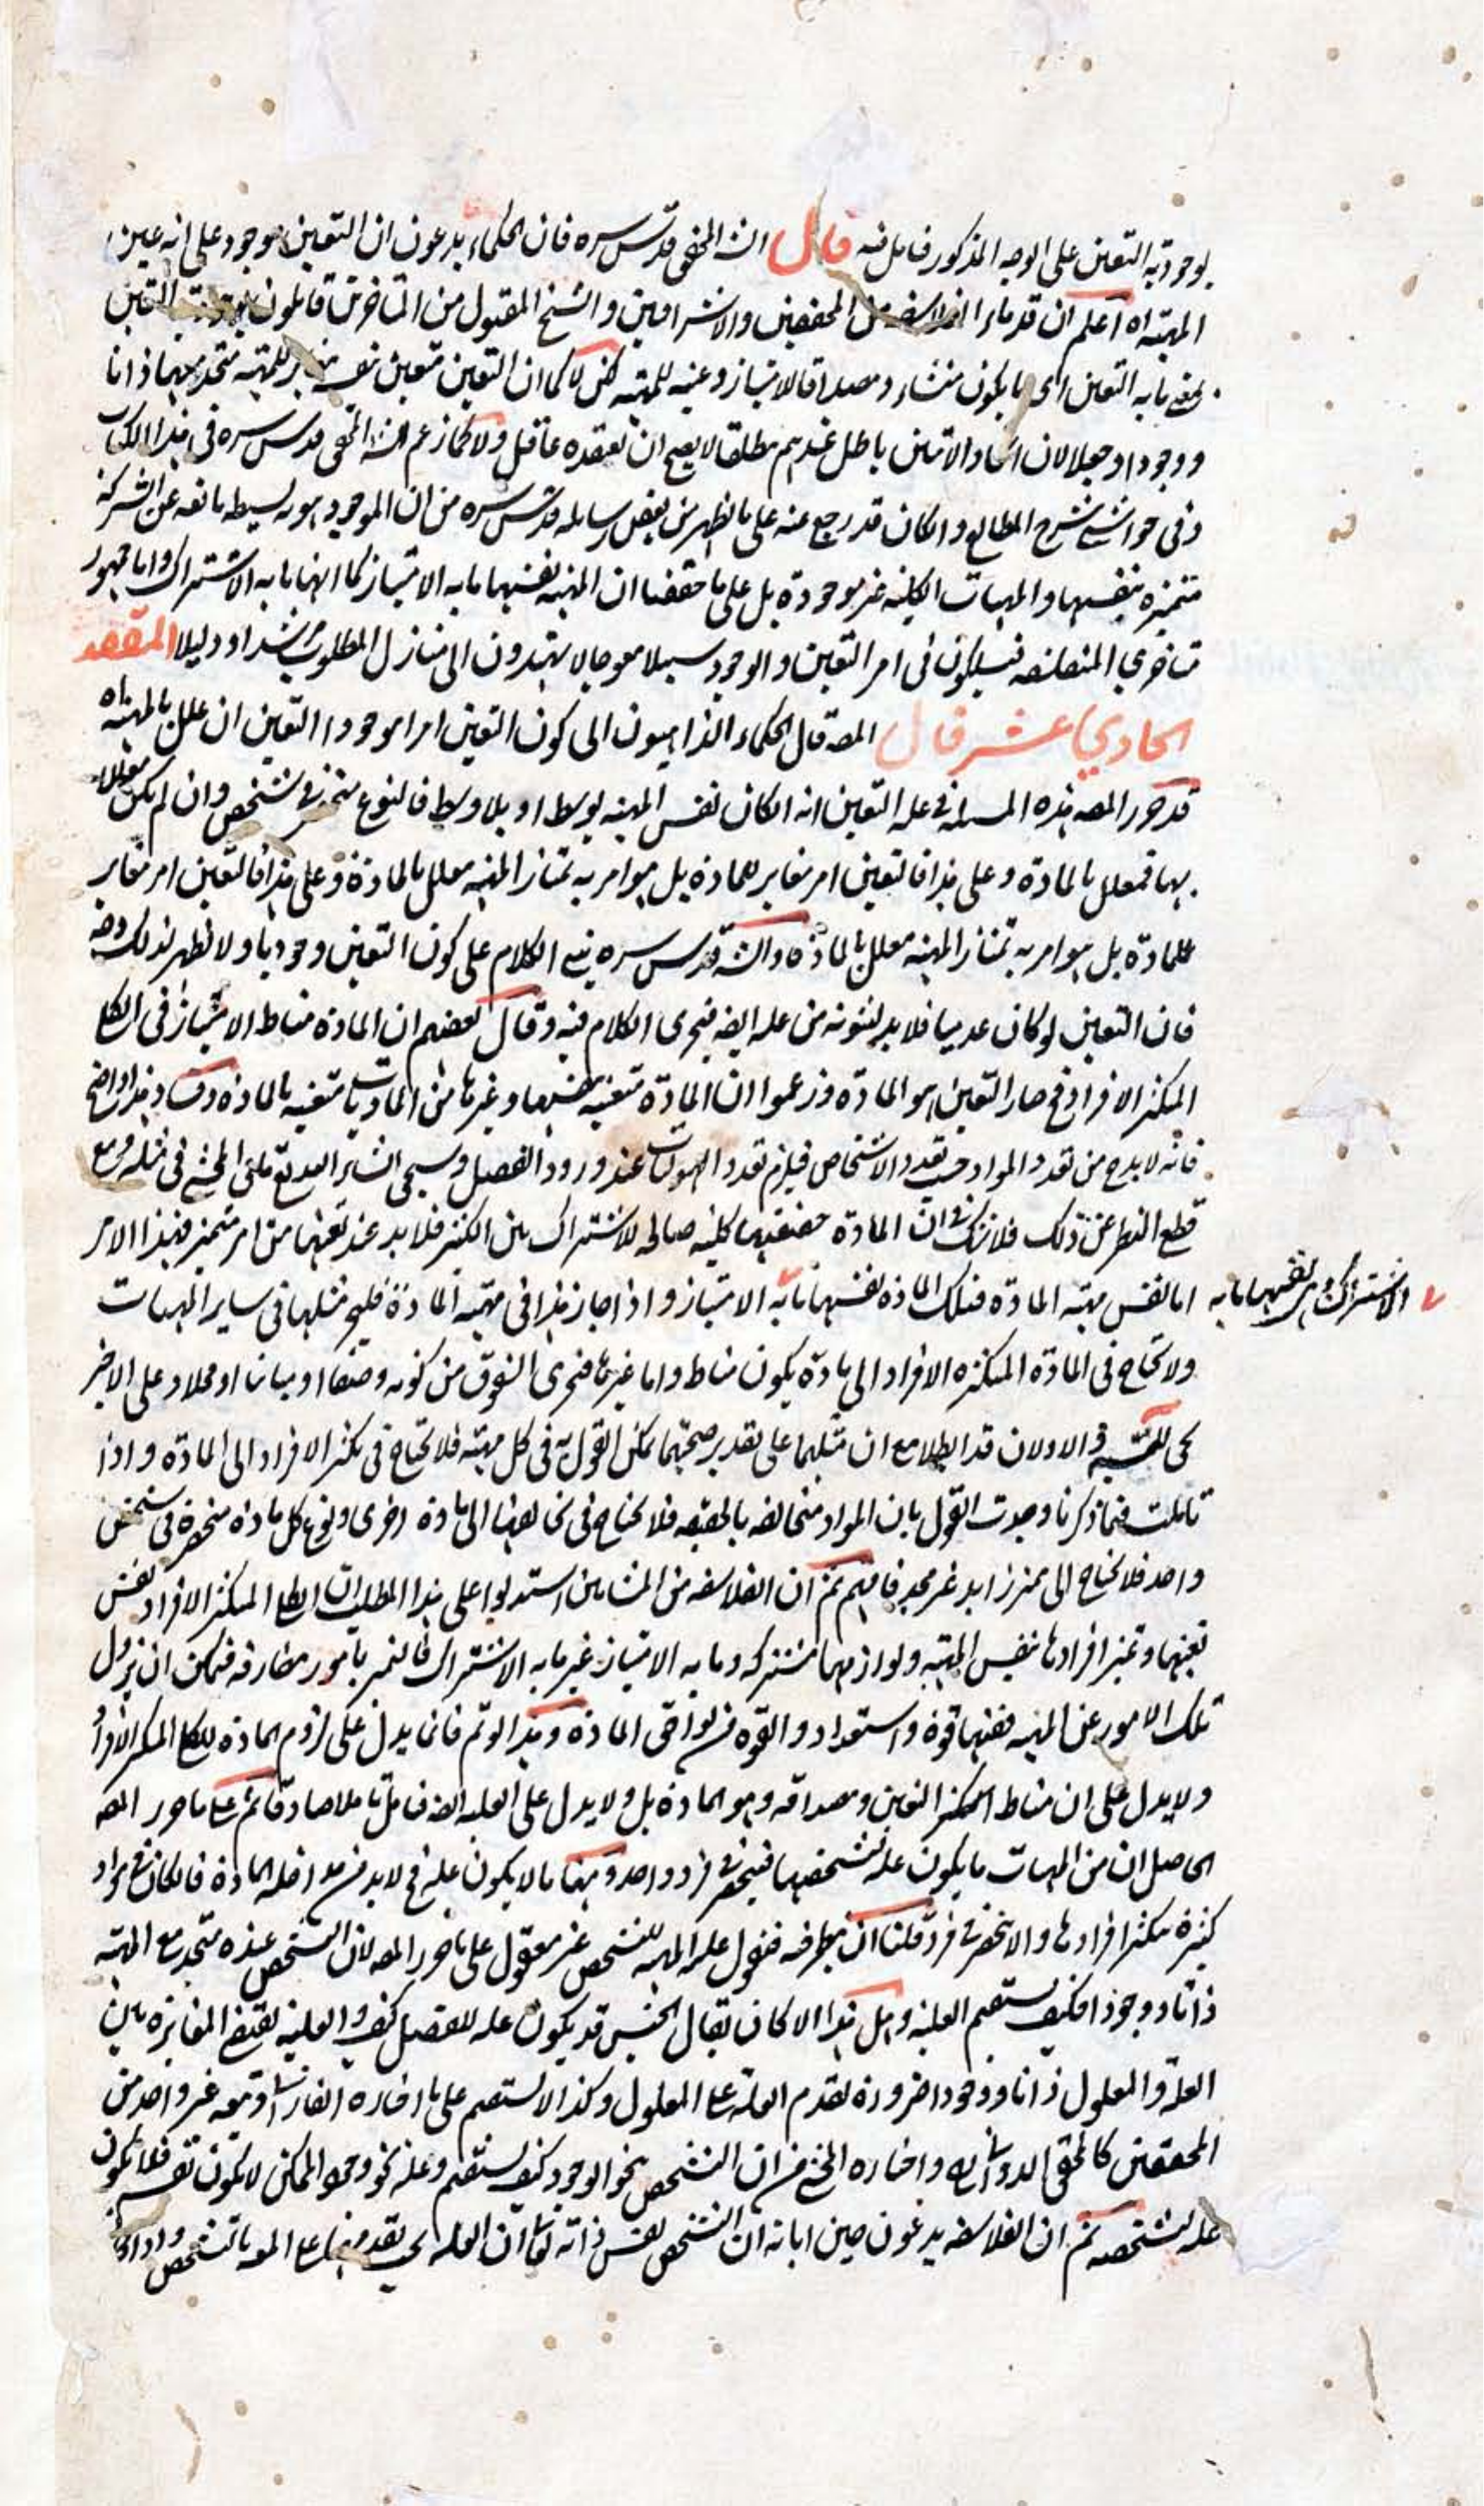 بوجودية التعين على الوجه المذكور فتأمل فيه قال الشـ المحقق قدس سره فان الحكماء يدعون ان التعين موجود على انه عين
المهية اه اعلم ان قدماء الفلاسفة من المحققين والاشراقيين والشيخ المقتول من المتأخرين قائلون بوجودية التعين
بمعنى ما به التعين اى ما يكون منشاء ومصداقا للامتياز وعينه للمهية لكن لا كما ان التعين متعين بنفسه للمهية متحد معها ذاتا
ووجودا وجعلا لان اتحاد الاثنين باطل عندهم مطلقا لا يصح ان يعتقده عاقل ولا كما زعم الشـ المحقق قدس سره فى هذا الكتاب
وفى حواشى شرح المطالع وان كان قد رجع عنه على ما يظهر من بعض رسايله قدس سره من ان الموجود هوية بسيطة مانعة عن الشركة
متميزة بنفسها والمهيات الكلية غير موجودة بل على ما حققنا ان المهية نفسها ما به الامتياز كما انها ما به الاشتراك واما جمهور
متأخرى المتفلسفة فيسلكون فى امر التعين والوجود سبيلا معوجا لا يهتدون الى منازل المطلوب مرشدا ودليلا المقصد
الحادي عشر قال المصـ قال الحكماء الذاهبون الى كون التعين امرا موجودا التعين ان علل بالمهية اه
قد حرر المصـ هذه المسئلة فى علة التعين انه ان كان نفس المهية بوسط او بلا وسط فالنوع منحصر فى شخص وان لم يكن معللا
بها فمعلل بالمادة وعلى هذا فالتعين امر مغاير للمادة بل هو امر به تمتاز المهية معلل بالمادة وعلى هذا فالتعين امر مغاير
للمادة بل هو امر به تمتاز المهية معلل بالمادة والشـ قدس سره بنى الكلام على كون التعين وجوديا ولا يظهر لذلك وجه
فان التعين لو كان عدميا فلا بد لثبوته من علة ايضا فيجرى الكلام فيه وقال بعضهم ان المادة مناط الامتياز فى الكلى
المتكثر الافراد فح صار التعين هو المادة وزعموا ان المادة متعينة بنفسها وغيرها من الماديات متعينة بالمادة وفساد هذا واضح
فانه لا بد ح من تعدد المواد حسب تعدد الاشخاص فيلزم تعدد الهيولات عند ورود الفصل وسيجئ ان شاء الله تعالى فى مثله ومع
قطع النظر عن ذلك فلا شك فى ان المادة حقيقتها كلية صالحة للاشتراك بين الكثير فلا بد عند تعينها من امر متميز فهذا الامر
اما نفس مهية المادة فتلك المادة نفسها ما به الامتياز واذا جاز هذا فى مهية المادة فليجز مثلها فى ساير المهيات
الاشتراك هى بنفسها ما به
ولا تحتاج فى المادة المتكثرة الافراد الى مادة يكون مناط واما غيرها فيجرى الشقوق من كونه وصفا او مباينا او محلا وعلى الاخير
يجئ التسـ والاولان قد ابطلا مع ان مثلهما على تقدير صحتهما يمكن القول به فى كل مهية فلا تحتاج فى تكثر الافراد الى المادة واذا
تأملت فيما ذكرنا وجدت القول بان المواد متخالفة بالحقيقة فلا تحتاج فى تخالفها الى مادة اخرى ونوع كل مادة منحصرة فى شخص
واحد فلا تحتاج الى مميز زايد غير مجد فافهم ثم ان الفلاسفة من المشائين استدلوا على هذا المطلب ان الكلى المتكثر الافراد نفس
تعينها وتميز افرادها بنفس المهية ولوازمها مشتركة وما به الامتياز غير ما به الاشتراك فالتميز بامور مفارقة فيمكن ان يزول
تلك الامور عن المهية ففيها قوة واستعداد والقوة من لواحق المادة وهذا لو تم فانما يدل على لزوم المادة للكلى المتكثر الافراد
ولا يدل على ان مناط التكثر التعين ومصداقه هو المادة بل ولا يدل على العلية ايضا فتأمل تأملا صادقا ثم على ما حرر المصـ
الحاصل ان من المهيات ما يكون علة لتشخصها فينحصر فى فرد واحد ومنها ما لا يكون علة فح لا بد من مداخلة المادة فان كان فى مواد
كثيرة تكثر افرادها والا انحصر فى فرد قلنا ان بطرفه فنقول علية المهية للتشخص غير معقول على ما حرر المصـ لان التشخص عنده متحد مع المهية
ذاتا ووجودا فكيف يستقيم العلية وهل هذا الا كان يقال الجنس قد يكون علة للفصل كيف والعلية تقتضى المغايرة بين
العلة والمعلول ذاتا ووجودا ضرورة تقدم العلة على المعلول وكذا لا يستقيم على ما اختاره الفارابى وتبعه غير واحد من
المحققين كالمحقق الدوانى واختاره المحشى من ان التشخص نحو الوجود كيف يستقيم وعلة نحو وجود الممكن لا يكون نفسه فلا يكون
علة لتشخصه ثم ان الفلاسفة يدعون حين ابانة ان التشخص نفس ذاته تعالى ان العلة يجب تقدمها على المعـ بالتشخص